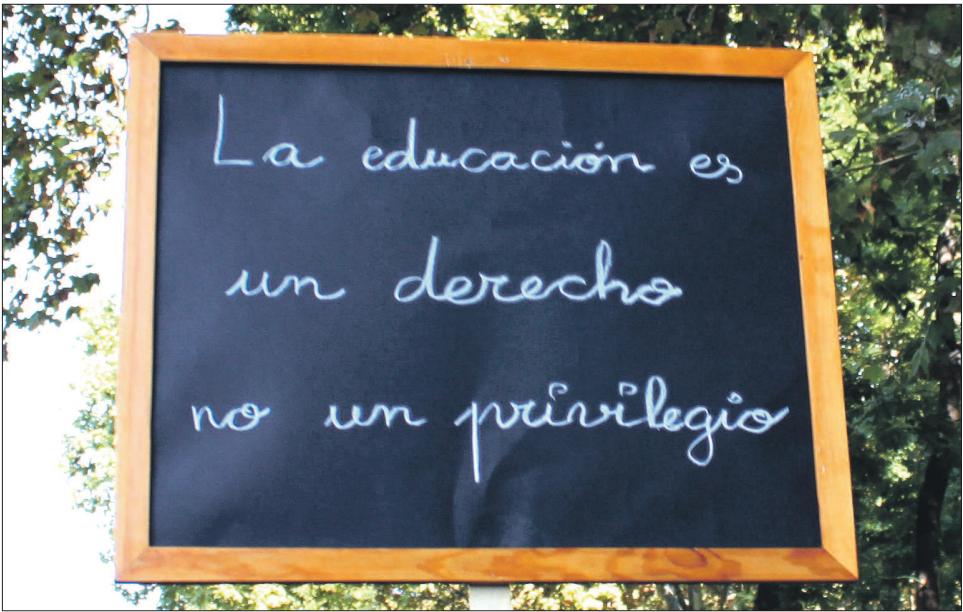 La educación es
un derecho
no un privilegio